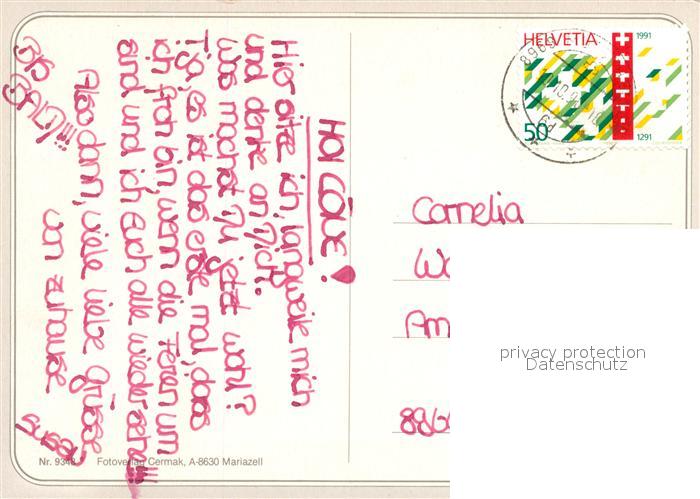 HOI CONE!
Hier sitze ich, langweile mich
und denke an Dich.
Was machst Du jetzt wohl?
Tja, es ist das erste mal, dass
ich froh bin, wenn die Ferien um
sind und ich Euch alle wiedersehe!!!
Also dann, viele liebe Grüsse
von zuhause
Susan
BIS
BALD!!!!
HELVETIA
1991
50
1291
Cornelia
Wo
Am
886
privacy protection
Datenschutz
Nr. 9348 Fotoverlag Cermak, A-8630 Mariazell